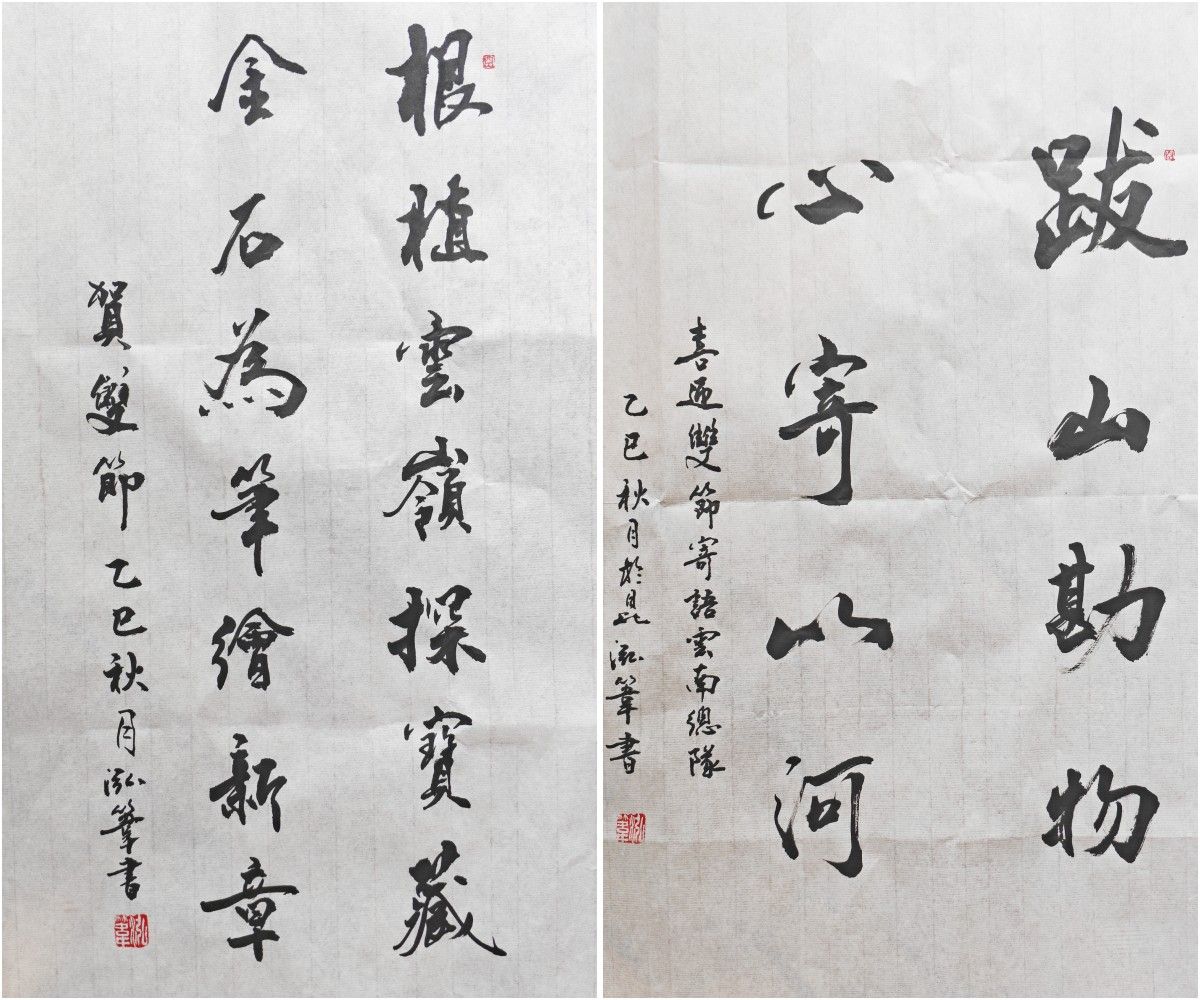 根植雲嶺探寶藏
金石為筆繪新章
賀雙節 乙巳秋月 泓葦書
跋山勘物
心寄山河
喜迎雙節寄語雲南總隊
乙巳秋月於昆 泓葦書